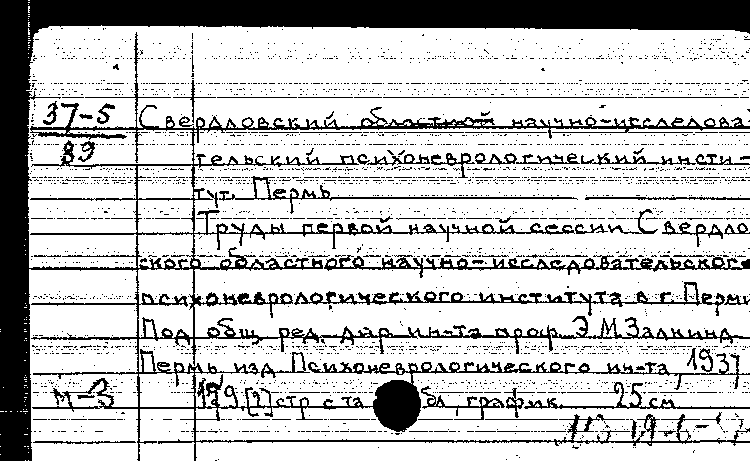 37-5
89
Свердловский областной научно-исследова-
тельский психоневрологический инсти-
тут. Пермь
Труды первой научной сессии Свердло
ского областного научно-исследовательского
психоневрологического института в г. Перми
Под общ. ред. дир ин-та проф. Э.М.Залкинд
Пермь, изд. Психоневрологического ин-та, 1937
179,[1] стр с та бл, график. 25 см
М-3